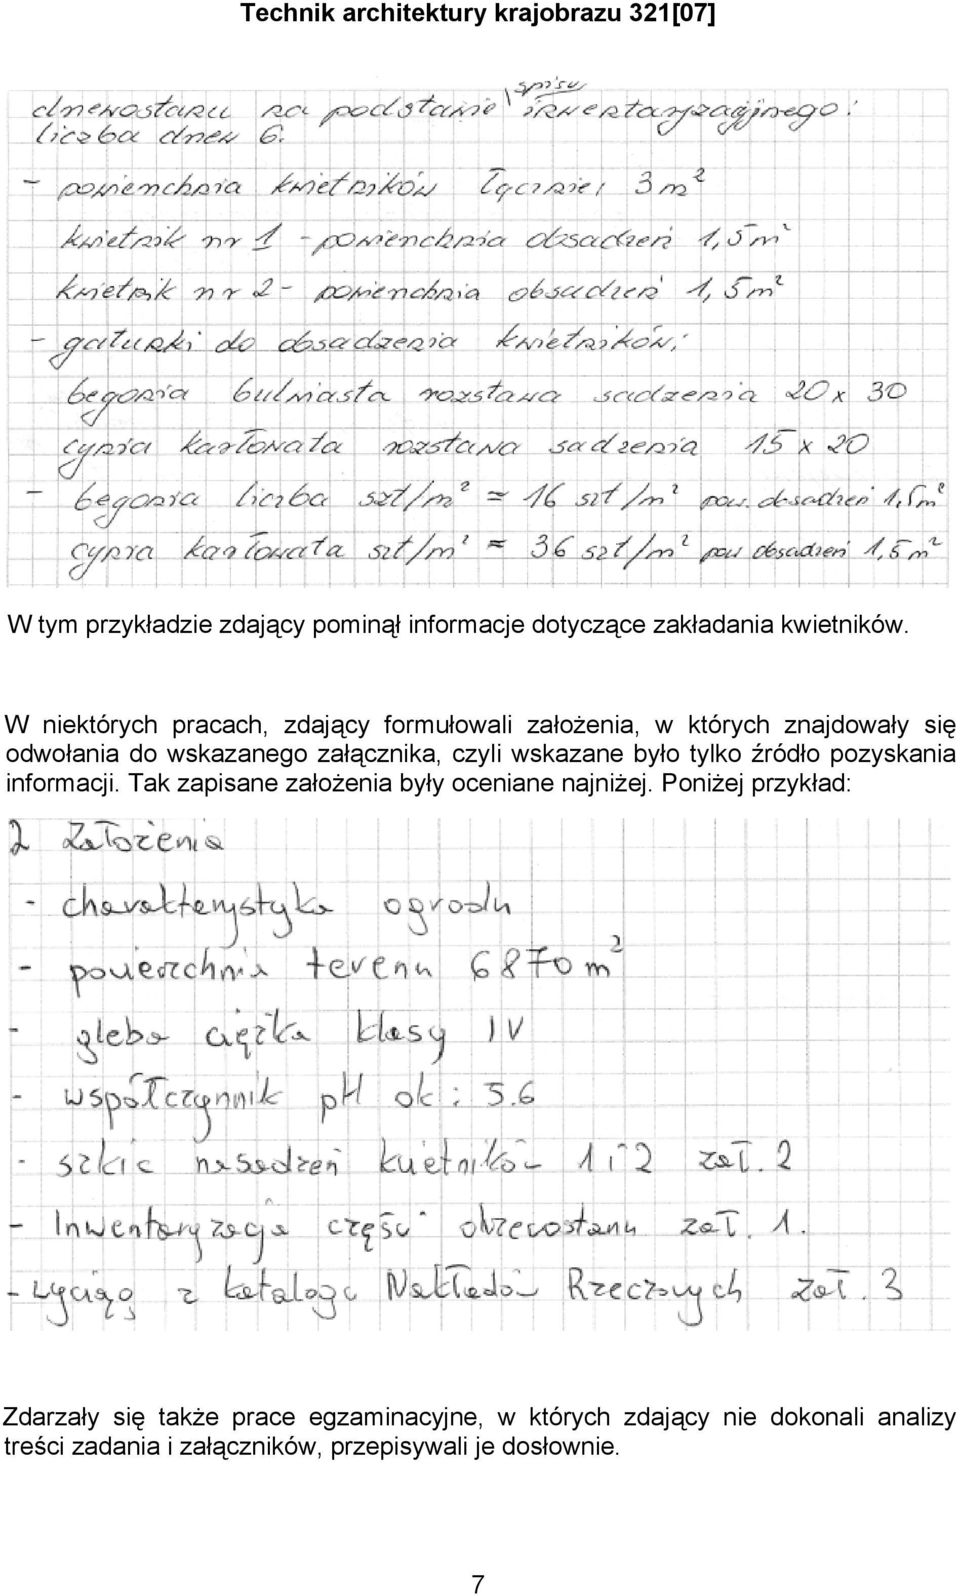 Technik architektury krajobrazu 321[07]
spisu
drzewostanu na podstawie inwentaryzacyjnego:
liczba drzew 6.
- powierzchnia kwietników łącznie, 3 m²
kwietnik nr 1 - powierzchnia obsadzeń 1,5m²
kwietnik nr 2 - powierzchnia obsadzeń 1,5m²
- gatunki do obsadzenia kwietników;
begonia bulwiasta rozstawa sadzenia 20 x 30
cynia karłowata rozstawa sadzenia 15 x 20
- begonia liczba szt/m² = 16 szt/m² pow. obsadzeń 1,5m²
cynia karłowata szt/m² = 36 szt/m² pow obsadzeń 1,5m²
W tym przykładzie zdający pominął informacje dotyczące zakładania kwietników.
W niektórych pracach, zdający formułowali założenia, w których znajdowały się
odwołania do wskazanego załącznika, czyli wskazane było tylko źródło pozyskania
informacji. Tak zapisane założenia były oceniane najniżej. Poniżej przykład:
2 Założenia
- charakterystyka ogrodu
- powierzchnia terenu 6870 m²
- gleba ciężka klasy IV
- współczynnik pH ok: 5.6
- szkic nasadzeń kwietników 1 i 2 zał. 2
- Inwentaryzacja część drzewostanu zał. 1.
- wyciąg z katalogu Nakładów Rzeczowych zał. 3
Zdarzały się także prace egzaminacyjne, w których zdający nie dokonali analizy
treści zadania i załączników, przepisywali je dosłownie.
7